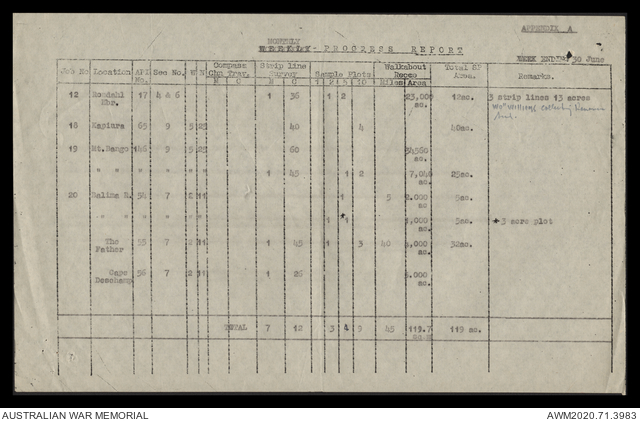 APPENDIX A
MONTHLY
WEEKLY - PROGRESS REPORT
WEEK ENDING 30 June
Job No Location API No. Sec No. W N Compass Chn Trav. M C Strip line Survey M C Sample Plots Walkabout Recce Miles Area Total SP Area. Remarks.
12 Rondahl Hbr. 17 4 & 6 1 36 1 2 23,000 ac. 12ac. 3 strip lines 13 acres
18 Kapiura 65 9 5 25 40 4 40ac.
19 Mt.Dango 146 9 5 25 60 34560 ac.
" " " " 1 45 1 2 7,040 ac. 25ac.
20 Dalima R. 54 7 2 11 1 5 2.000 ac. 5ac.
" " " " 1 1 1,000 ac. 5ac. + 3 acre plot
The Father 55 7 2 11 1 45 1 3 40 32ac.
Cape Deschamp 56 7 2 11 1 26
TOTAL 7 12 3 4 9 45 119 ac.
AUSTRALIAN WAR MEMORIAL
AWM2020.71.3983